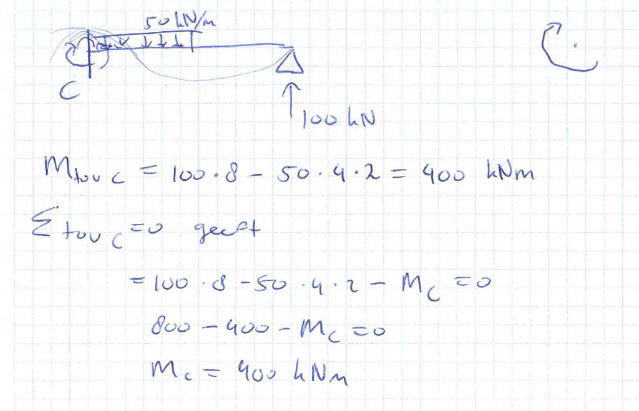 50 kN/m
C
100 kN
M tov C = 100 · 8 - 50 · 4 · 2 = 400 kNm
Σ tov C = 0 geeft
= 100 · 8 - 50 · 4 · 2 - M_C = 0
800 - 400 - M_C = 0
M_C = 400 kNm